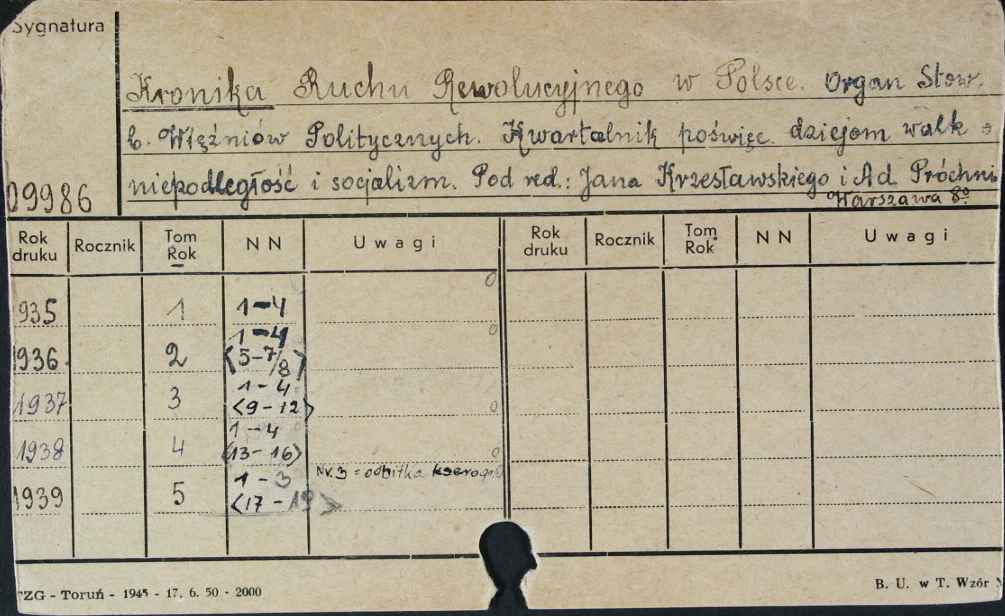 Sygnatura
Kronika Ruchu Rewolucyjnego w Polsce. Organ Stow.
b. Więźniów Politycznych. Kwartalnik poświęc. dziejom walk o
niepodległość i socjalizm. Pod red.: Jana Krzesławskiego i Ad. Próchni
09986
Warszawa 8º
Rok druku Rocznik Tom Rok N N Uwagi Rok druku Rocznik Tom Rok N N Uwagi
935 1 1-4
1936. 2 1-4 <5-7/8>
1937 3 1-4 <9-12>
1938 4 1-4 <13-16>
1939 5 1-3 <17-19> Nr. 3 = odbitka
ZG - Toruń - 1945 - 17. 6. 50 - 2000
B. U. w T. Wzór